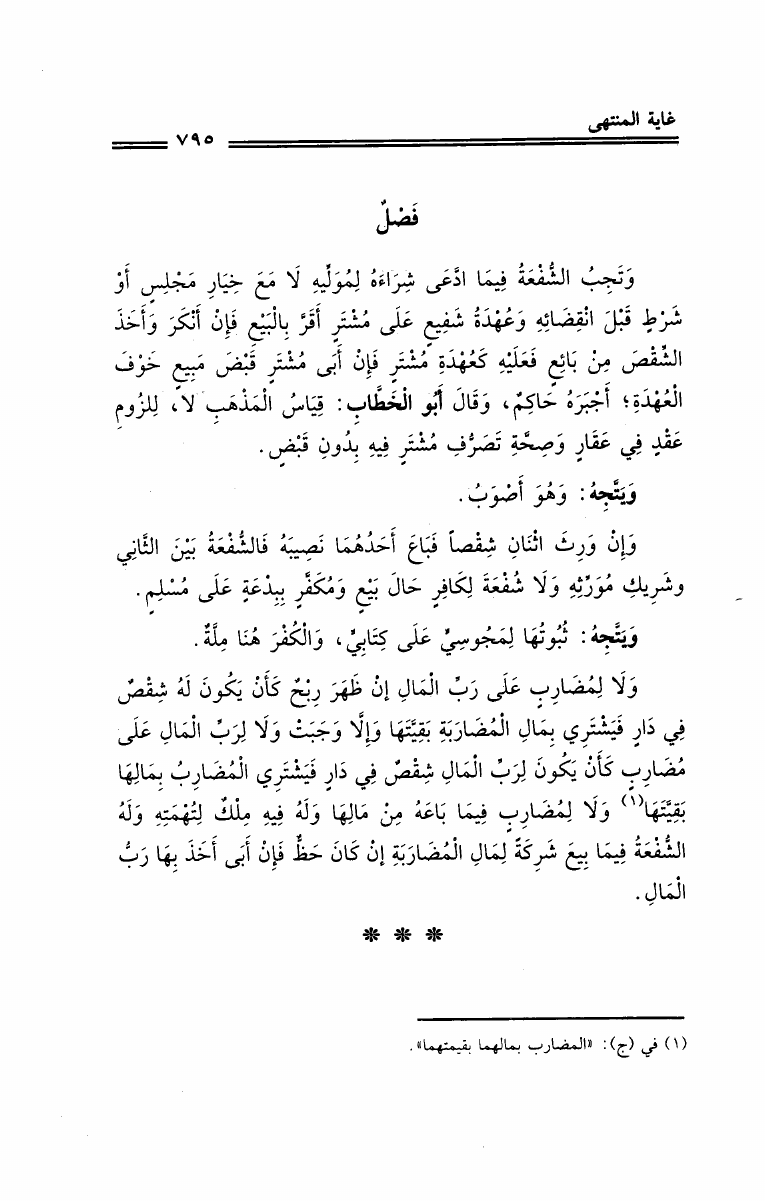 غاية المنتهى
٧٩٥
فَصْلٌ
وَتَجِبُ الشُّفْعَةُ فِيمَا ادَّعَى شِرَاءَهُ لِمُوَلِّيهِ لَا مَعَ خِيَارِ مَجْلِسٍ أَوْ
شَرْطٍ قَبْلَ انْقِضَائِهِ وَعُهْدَةُ شَفِيعٍ عَلَى مُشْتَرٍ أَقَرَّ بِالْبَيْعِ فَإِنْ أَنْكَرَ وَأَخَذَ
الشِّقْصَ مِنْ بَائِعٍ فَعَلَيْهِ كَعُهْدَةِ مُشْتَرٍ فَإِنْ أَبَى مُشْتَرٍ قَبْضَ مَبِيعٍ خَوْفَ
الْعُهْدَةِ؛ أَجْبَرَهُ حَاكِمٌ، وَقَالَ أَبُو الْخَطَّابِ: قِيَاسُ الْمَذْهَبِ لَا، لِلزُومِ
عَقْدٍ فِي عَقَارٍ وَصِحَّةِ تَصَرُّفِ مُشْتَرٍ فِيهِ بِدُونِ قَبْضٍ.
وَيَتَّجِهُ: وَهُوَ أَصْوَبُ.
وَإِنْ وَرِثَ اثْنَانِ شِقْصاً فَبَاعَ أَحَدُهُمَا نَصِيبَهُ فَالشُّفْعَةُ بَيْنَ الثَّانِي
وشَرِيكِ مُوَرِّثِهِ وَلَا شُفْعَةَ لِكَافِرٍ حَالَ بَيْعٍ وَمُكَفَّرٍ بِبِدْعَةٍ عَلَى مُسْلِمٍ.
وَيَتَّجِهُ: ثُبُوتُهَا لِمَجُوسِيٍّ عَلَى كِتَابِيٍّ، وَالْكُفْرَ هُنَا مِلَّةٌ.
وَلَا لِمُضَارِبٍ عَلَى رَبِّ الْمَالِ إِنْ ظَهَرَ رِبْحٌ كَأَنْ يَكُونَ لَهُ شِقْصٌ
فِي دَارٍ فَيَشْتَرِي بِمَالِ الْمُضَارَبَةِ بَقِيَّتَهَا وَإِلَّا وَجَبَتْ وَلَا لِرَبِّ الْمَالِ عَلَى
مُضَارِبٍ كَأَنْ يَكُونَ لِرَبِّ الْمَالِ شِقْصٌ فِي دَارٍ فَيَشْتَرِي الْمُضَارِبُ بِمَالِهَا
بَقِيَّتَهَا(١) وَلَا لِمُضَارِبٍ فِيمَا بَاعَهُ مِنْ مَالِهَا وَلَهُ فِيهِ مِلْكٌ لِتُهْمَتِهِ وَلَهُ
الشُّفْعَةُ فِيمَا بِيعَ شَرِكَةً لِمَالِ الْمُضَارَبَةِ إِنْ كَانَ حَظٌّ فَإِنْ أَبَى أَخَذَ بِهَا رَبُّ
الْمَالِ.
(١) في (ج): «المضارب بمالهما بقيمتهما».